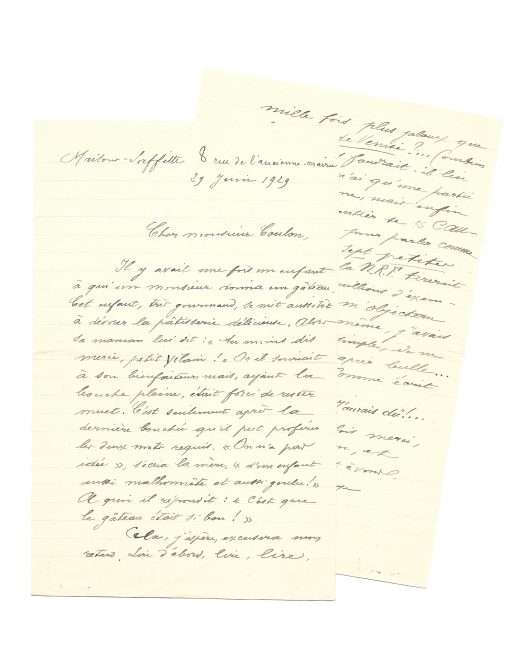 Maisons-Laffitte 8 rue de l'ancienne mairie
29 Juin 1929
Cher monsieur Coulon,
Il y avait une fois un enfant
à qui un monsieur donna un gâteau.
Cet enfant, très gourmand, se mit aussitôt
à dévorer la pâtisserie délicieuse. Alors
sa maman lui dit : « Au moins dis
merci, petit vilain ! » Or il souriait
à son bienfaiteur mais, ayant la
bouche pleine, était forcé de rester
muet. C'est seulement après la
dernière bouchée qu'il put proférer
les deux mots requis. « On n'a pas
idée », s'écria la mère, « d'un enfant
aussi malhonnête et aussi goulu ! »
A quoi il répondit : « C'est que
le gâteau était si bon ! »
Cela, j'espère, excusera mon
retard. Lire d'abord, lire, lire.
mille fois plus jaloux que
de Venise ?
faudrait : il lui
n'ai qu'une partie
mais enfin
pour parler comme
sept petites
la NRF tirerait
d'exem-
m'objectera
même, j'avais
après
comme écrit
J'aurais dû !...
fois merci,